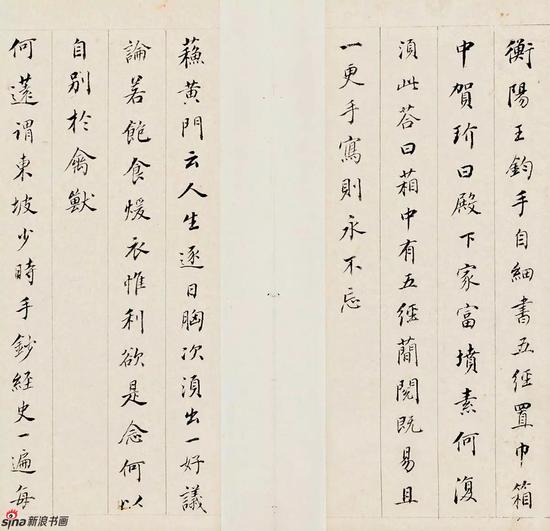 衡陽王鈞手自細書五經置巾箱
中賀玠曰殿下家富墳素何復
須此荅曰葙中有五經蕳閱既易且
一更手寫則永不忘
蘓黄門云人生逐日胸次須出一好議
論若飽食煖衣惟利欲是念何以
自别於禽獸
何薳謂東坡少時手鈔經史一遍每
sina新浪书画